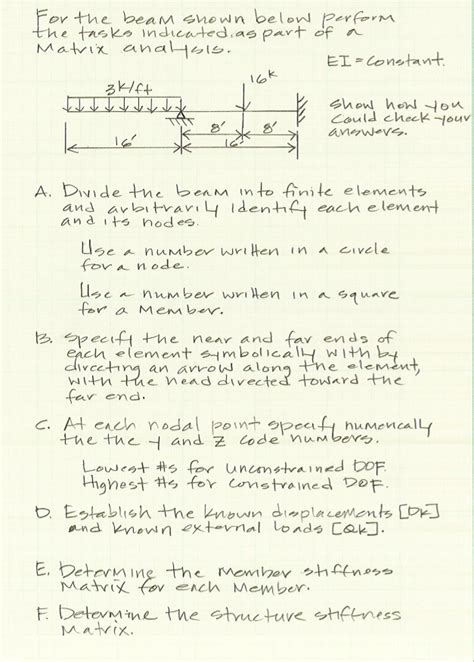 For the beam shown below perform
the tasks indicated, as part of a
Matrix analysis.
EI = Constant.
16k
3k/ft
show how you
could check your
answers.
8' 8'
16' 16'
A. Divide the beam into finite elements
and arbitrarily identify each element
and its nodes.
Use a number written in a circle
for a node.
Use a number written in a square
for a Member.
B. Specify the near and far ends of
each element symbolically with by
directing an arrow along the element,
with the head directed toward the
far end.
C. At each nodal point specify numerically
the the y and z code numbers.
Lowest #s for unconstrained DOF.
Highest #s for constrained DOF.
D. Establish the known displacements [Dk]
and known external loads [Qk].
E. Determine the Member stiffness
Matrix for each Member.
F. Determine the structure stiffness
Matrix.